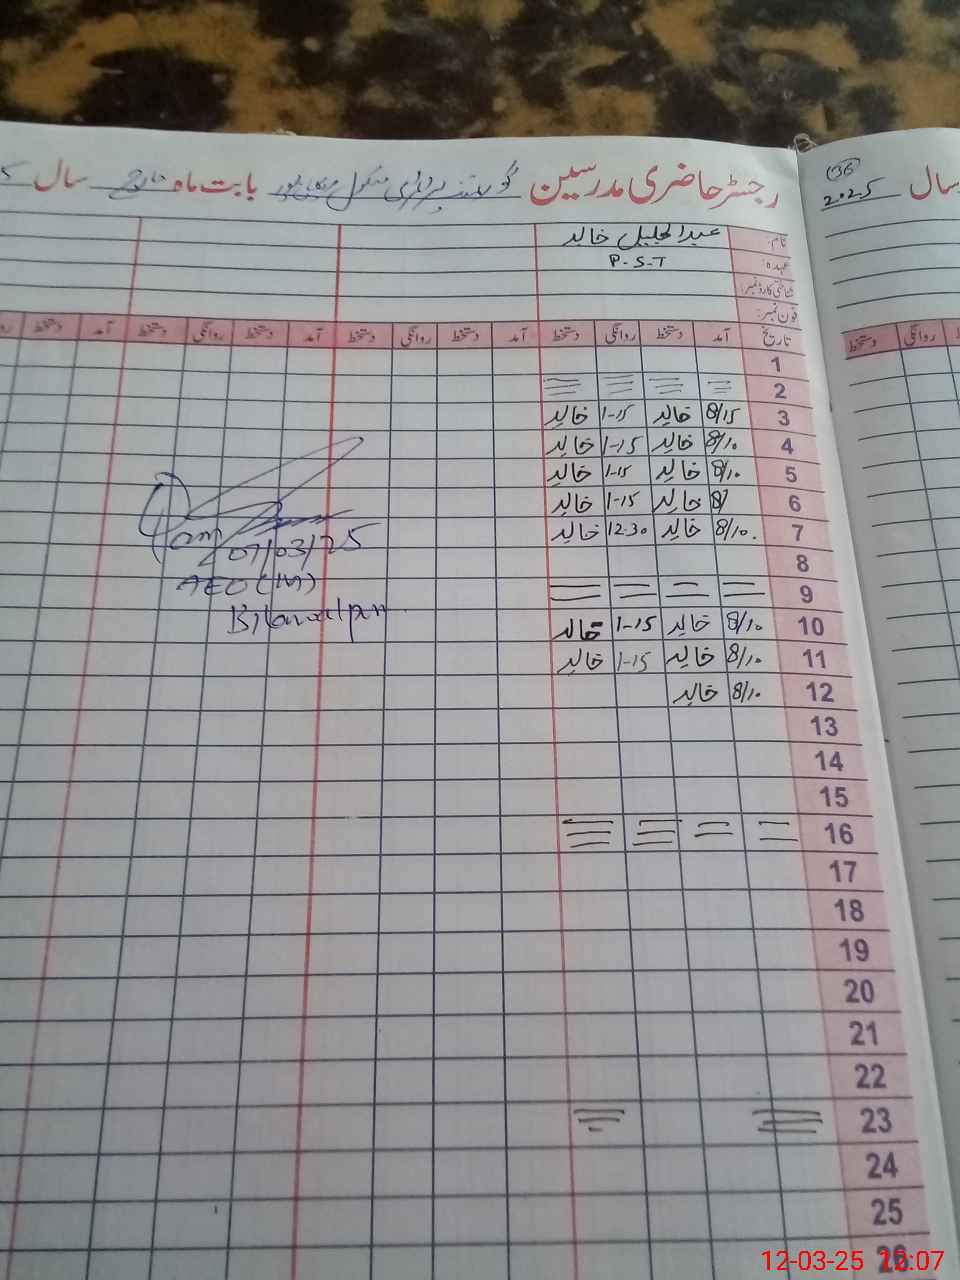 رجسٹر حاضری مدرسین گورنمنٹ پرائمری سکول بابت ماہ مارچ سال
36
سال 2025
نام: عبدالجلیل خالد
عہدہ: P.S.T
شناختی کارڈ نمبر:
فون نمبر:
تاریخ آمد دستخط روانگی دستخط آمد دستخط روانگی دستخط آمد دستخط روانگی دستخط
دستخط روانگی
1
2
3 8/15 خالد 1-15 خالد
4 8/10 خالد 1-15 خالد
5 8/10 خالد 1-15 خالد
6 8/ خالد 1-15 خالد
7 8/10. خالد 12:30 خالد
8
9
10 8/10 خالد 1-15 خالد
11 8/10 خالد 1-15 خالد
12 8/10 خالد
13
14
15
16
17
18
19
20
21
22
23
24
25
26
07/03/25
AEO (M)
12-03-25 12:07